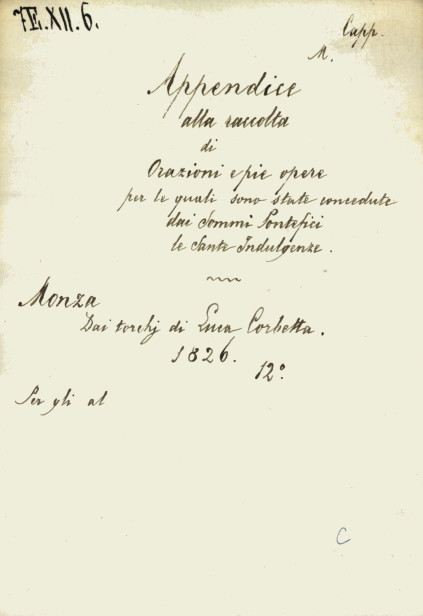 7E.XII.6.
Capp.
M.
Appendice
alla raccolta
di
Orazioni e pie opere
per le quali sono state concedute
dai Sommi Pontefici
le Sante Indulgenze.
Monza
Dai torchj di Luca Corbetta.
1826.
12º.
Per gli al
C